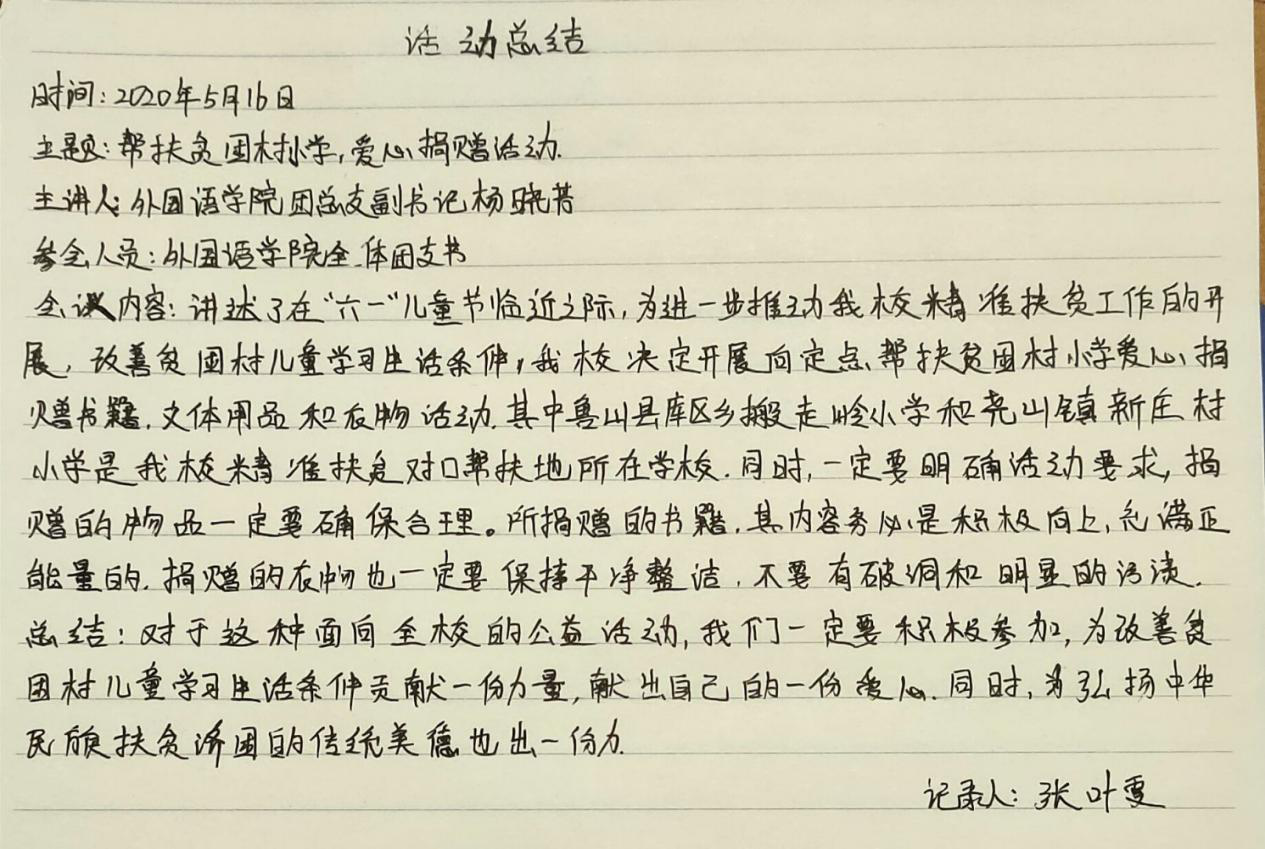 活动总结
时间:2020年5月16日
主题:帮扶贫困村小学,爱心捐赠活动.
主讲人:外国语学院团总支副书记杨晓芳
参会人员:外国语学院全体团支书
会议内容:讲述了在“六一”儿童节临近之际,为进一步推动我校精准扶贫工作的开
展,改善贫困村儿童学习生活条件,我校决定开展向定点帮扶贫困村小学爱心捐
赠书籍.文体用品和衣物活动.其中鲁山县库区乡搬走岭小学和尧山镇新庄村
小学是我校精准扶贫对口帮扶地所在学校.同时,一定要明确活动要求,捐
赠的物品一定要确保合理。所捐赠的书籍.其内容务必是积极向上,充满正
能量的.捐赠的衣物也一定要保持干净整洁.不要有破洞和明显的污渍.
总结:对于这种面向全校的公益活动,我们一定要积极参加,为改善贫
困村儿童学习生活条件贡献一份力量,献出自己的一份爱心.同时,为弘扬中华
民族扶贫济困的传统美德也出一份力.
记录人:张叶雯